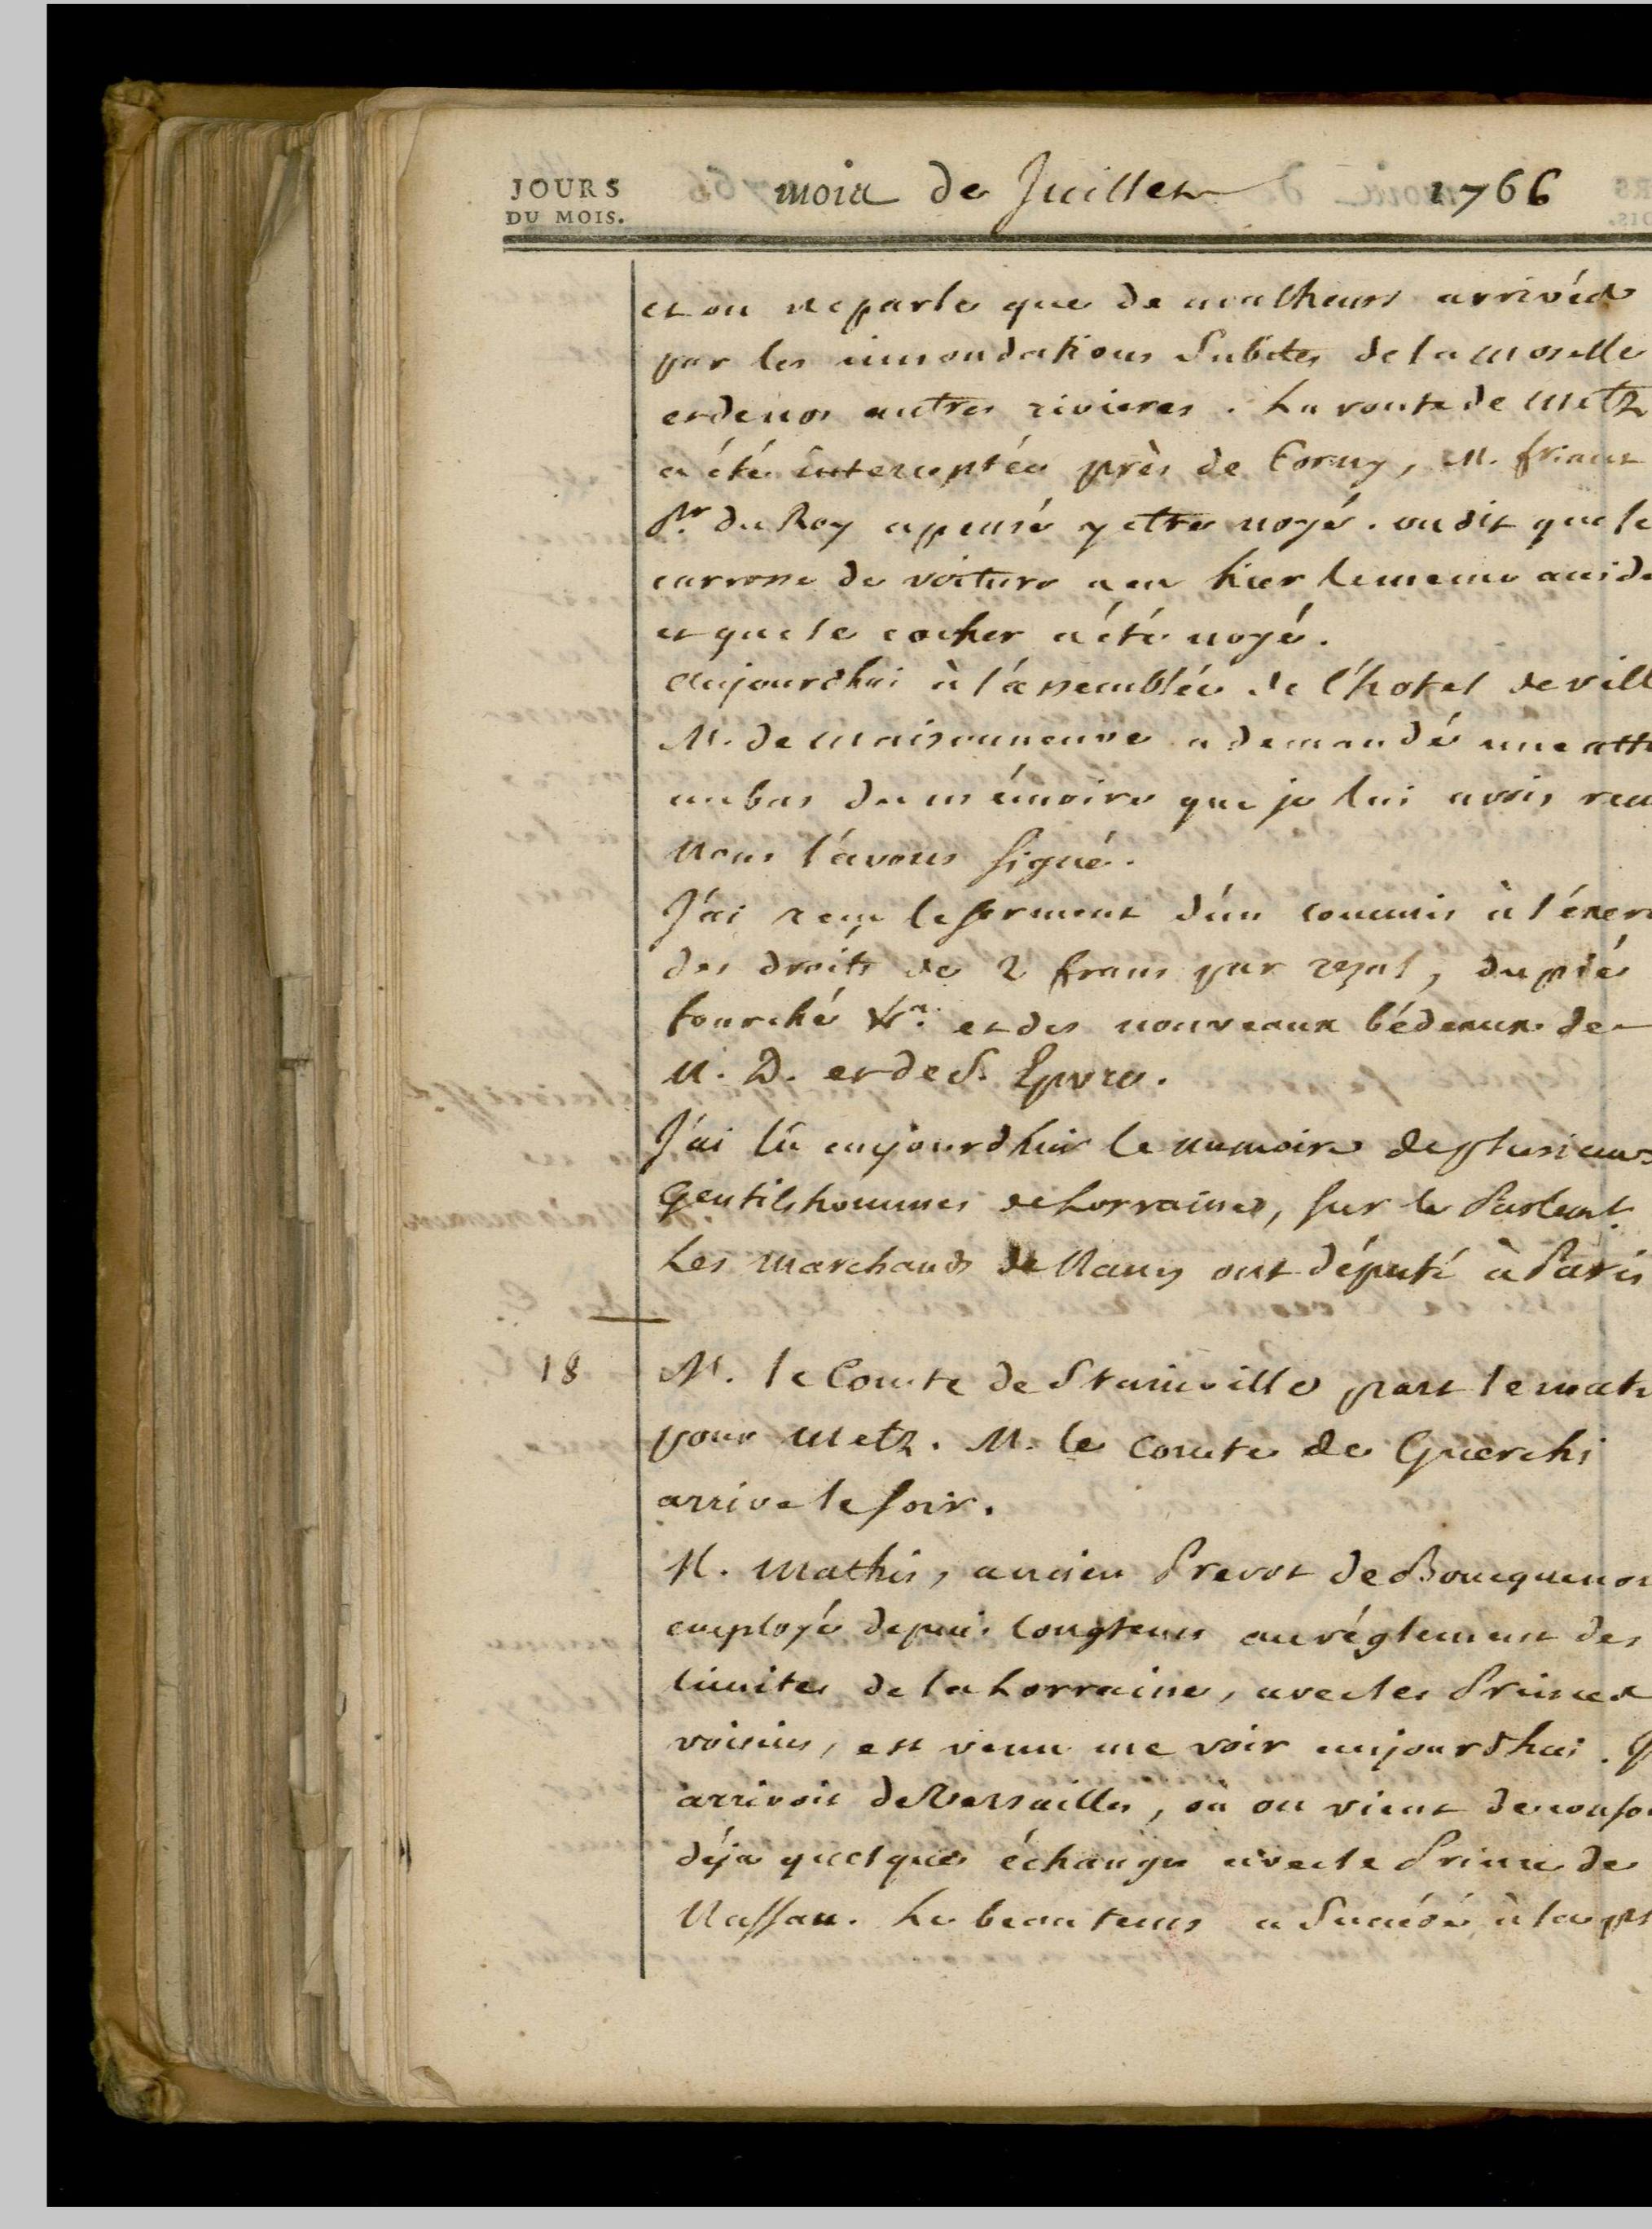 JOURS
DU MOIS.
mois de Juillet 1766
et on ne parle que de malheurs arrivés
par les innondations subites de la moselle
et de nos autres rivieres. La route de Metz
a été interceptée près de Corny, M. friant
Pr. du Roy a pensé y etre noyé. on dit que le
carrosse de voiture a eu hier le meme accide
et que le cocher a été noyé.
Aujourdhui à l'assemblée de l'hotel de vill
M. de Maisonneuve a demandé une atte
au bas du mémoire que je lui avois rem
Nous l'avons signé.
J'ai reçu le serment d'un commis à l'exerc
des droits de 2 frans par rezal, du pié
fourché &a. et des nouveaux bédeaux de
N. D. et de S. Epvre.
J'ai lû aujourdhui le memoire de plusieurs
Gentilshommes de Lorraine, sur le Parlemt.
Les Marchands de Nancy ont député à Paris
18
M. le Comte de Stainville part le mati
pour Metz. M. le Comte de Guerchi
arrive le soir.
M. Mathis, ancien Prevot de Boucquenom
employé depuis longtems au réglement des
limites de la Lorraine, avec les Princes
voisins, est venu me voir aujourdhui.
arrivoit de Versailles, où on vient de
déja quelques échanges avec le Prince de
Nassau. Le beau tems a succédé à la pl